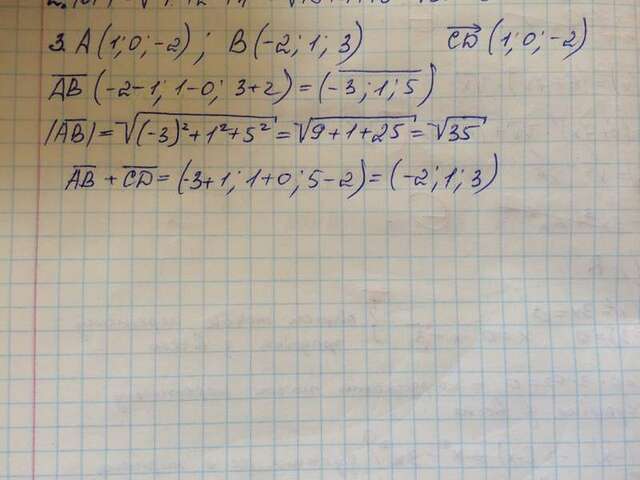 3. A (1; 0; -2) ; B (-2; 1; 3) CD (1; 0; -2)
AB (-2-1; 1-0; 3+2) = (-3; 1; 5)
|AB| = √(-3)²+1²+5² = √9+1+25 = √35
AB + CD = (-3+1; 1+0; 5-2) = (-2; 1; 3)